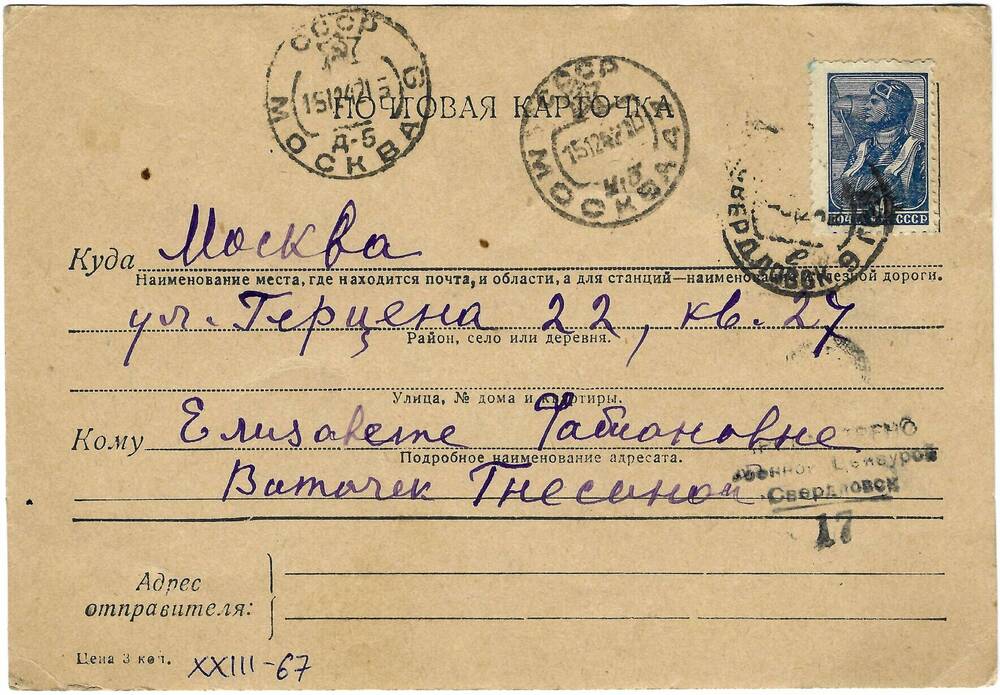 СССР
151242
МОСКВА
Д-5
СССР
151242
МОСКВА
ПОЧТОВАЯ КАРТОЧКА
СССР
СВЕРДЛОВСК
Куда Москва
Наименование места, где находится почта, и области, а для станций—наименование железной дороги.
ул. Герцена 22, кв. 27
Район, село или деревня.
Улица, № дома и квартиры.
Кому Елизавете Фабиановне
Подробное наименование адресата.
Витачек Гнесиной
Военной Цензурой
Свердловск
17
Адрес
отправителя:
Цена 3 коп. XXIII-67